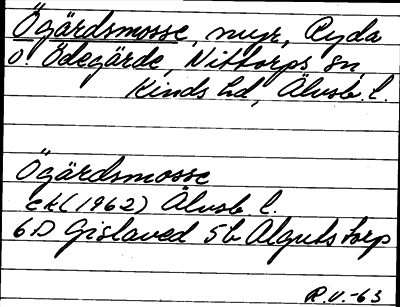 Ögärdsmosse, myr, Ryda
o. Ödegärde, Nittorps sn,
Kinds hd, Älvsb. l.
Ögärdsmosse
ek (1962) Älvsb l.
6D Gislaved 5b Algutstorp
R.V.-63